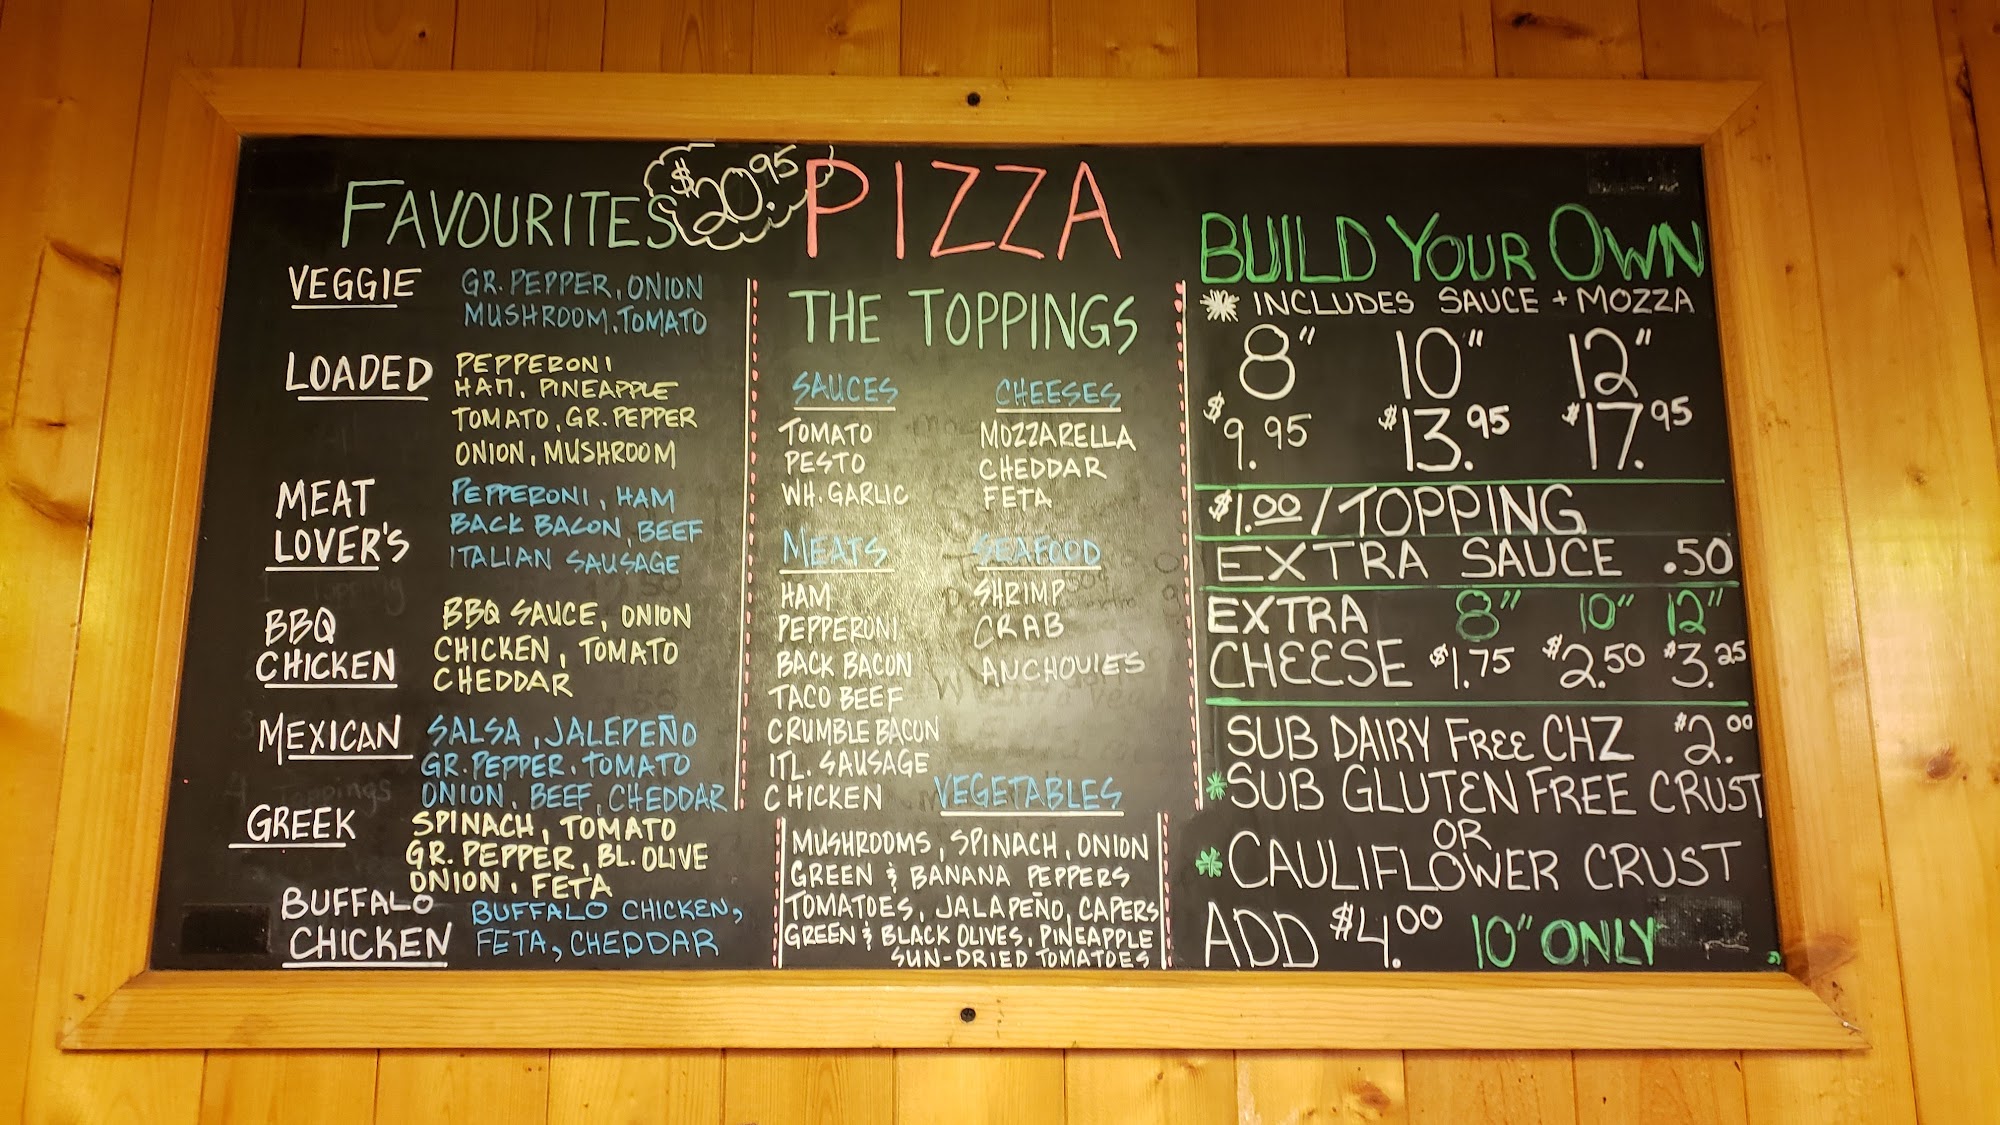 FAVOURITES $20.95
VEGGIE GR. PEPPER, ONION
MUSHROOM, TOMATO
LOADED PEPPERONI
HAM, PINEAPPLE
TOMATO, GR. PEPPER
ONION, MUSHROOM
MEAT PEPPERONI, HAM
LOVER'S BACK BACON, BEEF
ITALIAN SAUSAGE
BBQ BBQ SAUCE, ONION
CHICKEN CHICKEN, TOMATO
CHEDDAR
MEXICAN SALSA, JALEPEÑO
GR. PEPPER. TOMATO
ONION. BEEF, CHEDDAR
GREEK SPINACH, TOMATO
GR. PEPPER, BL. OLIVE
ONION. FETA
BUFFALO BUFFALO CHICKEN,
CHICKEN FETA, CHEDDAR
PIZZA
THE TOPPINGS
SAUCES
TOMATO
PESTO
WH. GARLIC
CHEESES
MOZZARELLA
CHEDDAR
FETA
MEATS
HAM
PEPPERONI
BACK BACON
TACO BEEF
CRUMBLE BACON
ITL. SAUSAGE
CHICKEN
SEAFOOD
SHRIMP
CRAB
ANCHOVIES
VEGETABLES
MUSHROOMS, SPINACH, ONION
GREEN & BANANA PEPPERS
TOMATOES, JALAPEÑO, CAPERS
GREEN & BLACK OLIVES, PINEAPPLE
SUN-DRIED TOMATOES
BUILD YOUR OWN
* INCLUDES SAUCE + MOZZA
8" 10" 12"
$9.95 $13.95 $17.95
$1.00/TOPPING
EXTRA SAUCE .50
EXTRA 8" 10" 12"
CHEESE $1.75 $2.50 $3.25
SUB DAIRY FREE CHZ $2.00
*SUB GLUTEN FREE CRUST
OR
*CAULIFLOWER CRUST
ADD $4.00 10" ONLY